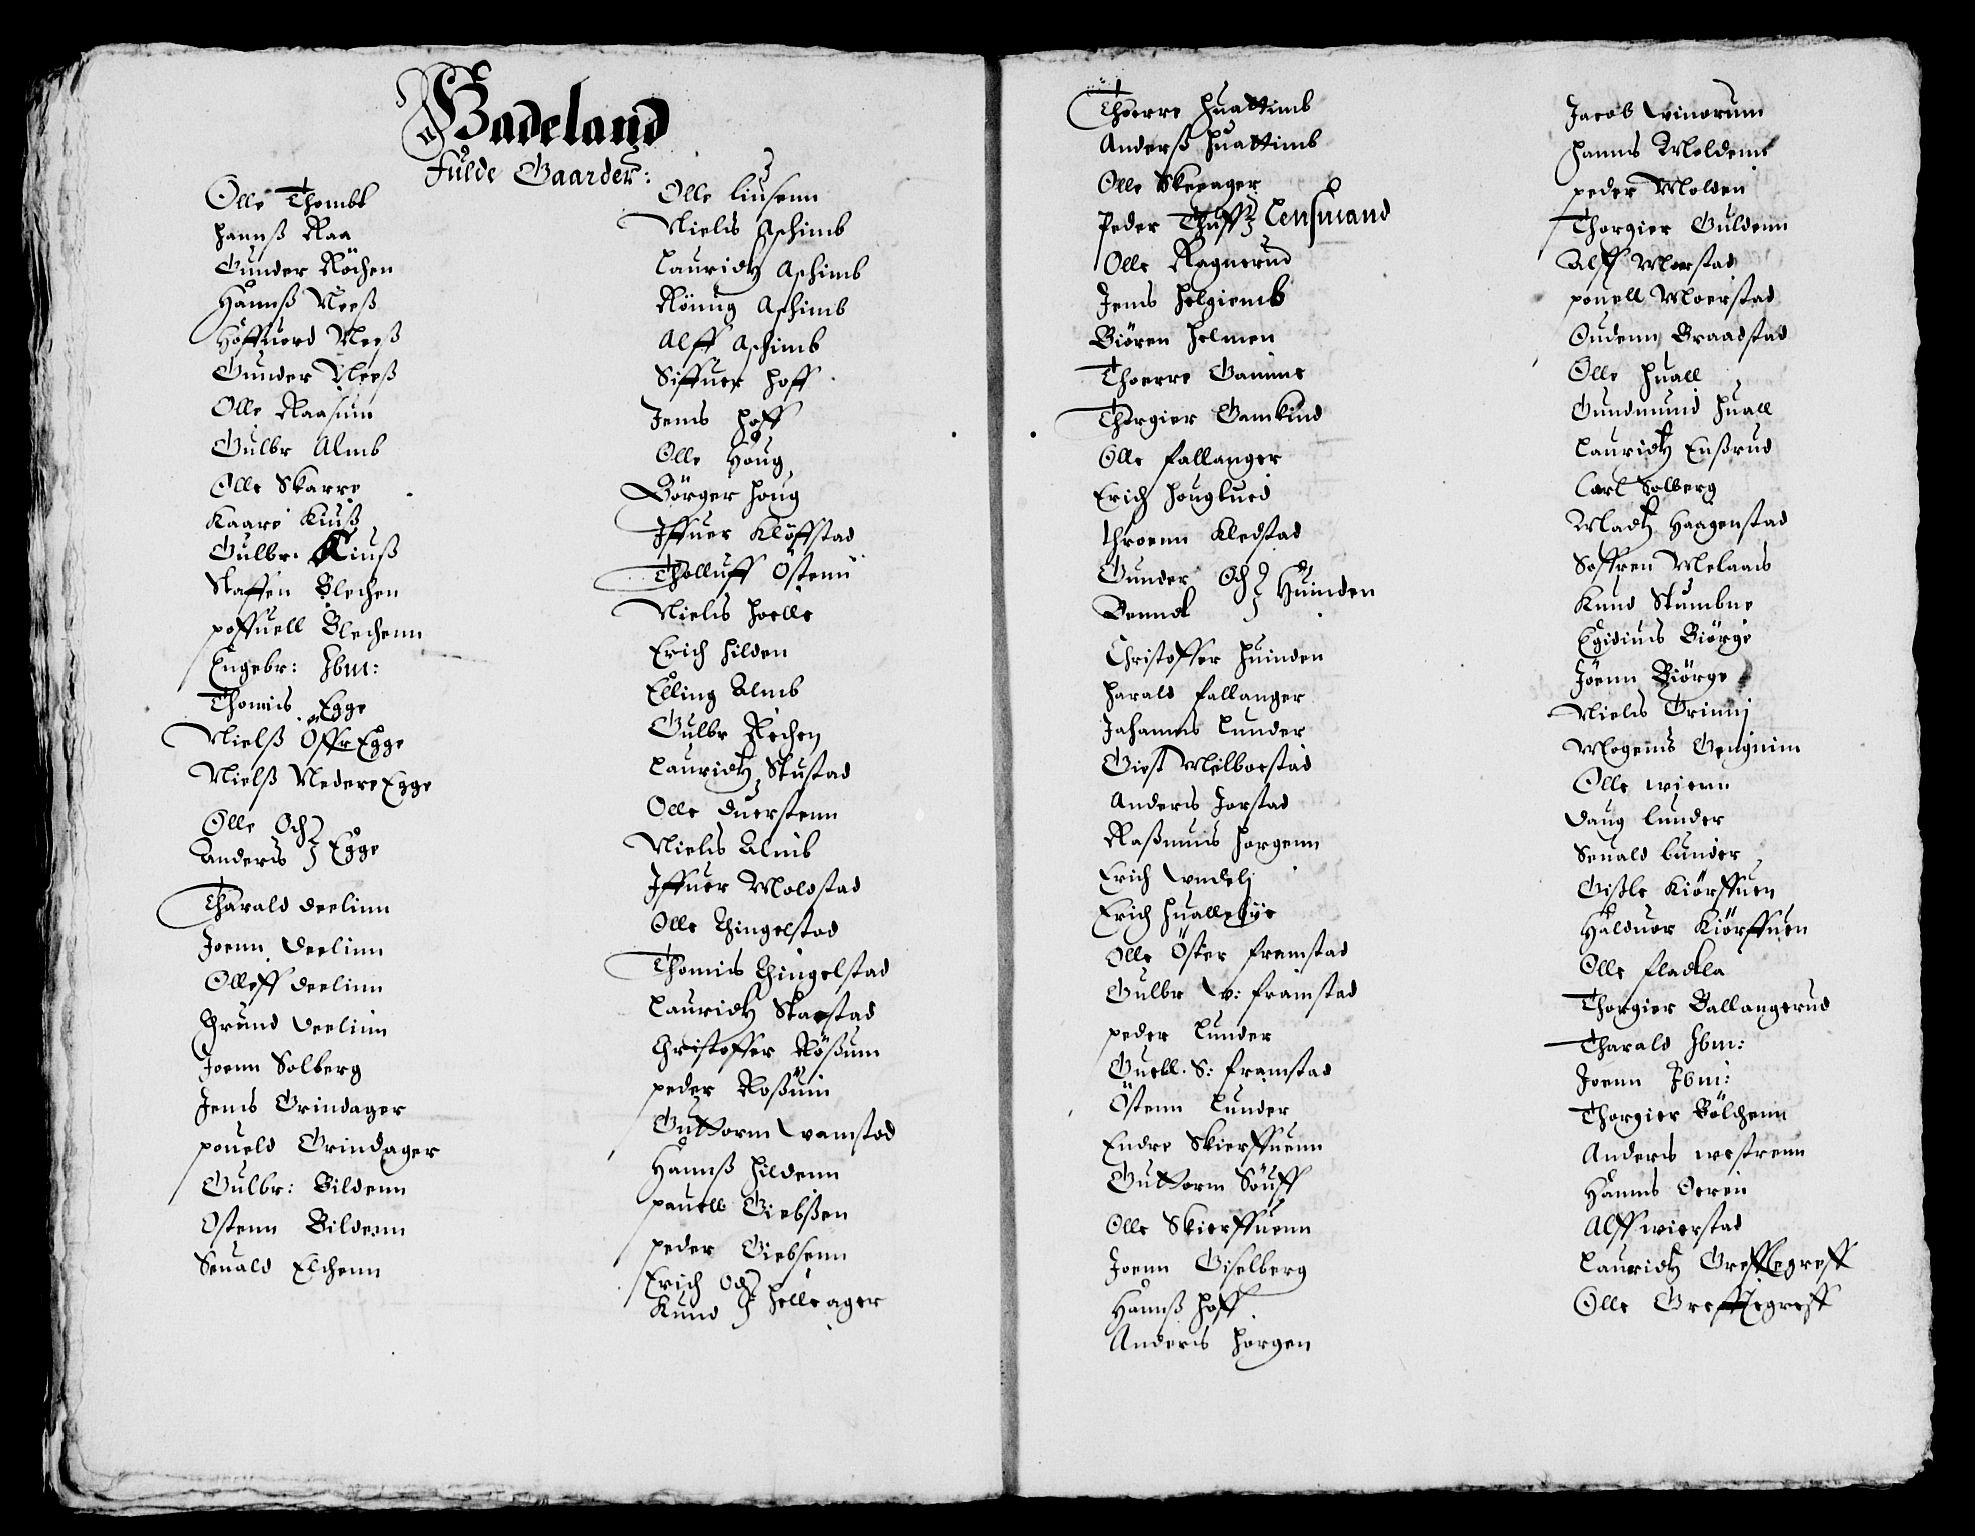 Hadeland
Fulde Gaarder:
Olle Thombt
Hannß Raa
Gunder Röchen
Hannß Neeß
Hoffuord Neeß
Gunder Neeß
Olle Raasum
Gulbr Almb
Olle Skarre
Kaare Kiuß
Gulbr: Kiuß
Staffen Blechen
Poffuell Blechenn
Engebr: Ibm:
Thomis Egge
Nielß Öffr Egge
Nielß Nedere Egge
Olle Och
Anders Egge
Tharald Deelinn
Joenn Deelinn
Olleff Deelinn
Grund Deelinn
Joenn Solberg
Jens Grindager
Poueld Grindager
Gulbr: Bildenn
Ostenn Bildenn
Seuald Elchenn
Olle Liusenn
Niels Aschimb
Lauridtz Aschimb
Rönnug Aschimb
Alff Aschimb
Siffuer Hoff
Jens Hoff
Olle Houg
Börger Houg
Iffuer Klöffstad
Tholluff Östenn
Niels Hoelle
Erich Hilden
Elling Almb
Gulbr Röchen
Lauridtz Stustad
Olle Duerstenn
Niels Almb
Iffuer Moldstad
Olle Thingelstad
Thomis Thingelstad
Lauridtz Staxstad
Christoffer Rößum
Peder Roßum
Guttorm Wamstad
Hannß Hildenn
Pauell Giebßen
Peder Giebsenn
Erich Och
Knud Helleager
Thoerre Huattimb
Anderß Huattimb
Olle Skeeager
Peder Thuffz Lensmand
Olle Ragnerud
Jens Helgiemb
Biören Helmen
Thoerre Gamme
Thorgier Gamkind
Olle Fallanger
Erich Houglued
Throenn Kledstad
Gunder Och
Benndt Huinden
Christoffer Huinden
Harald Fallanger
Johanns Lunder
Giest Melboestad
Anders Jorstad
Raßmuns Horgenn
Erich Undelj
Erich Huallebye
Olle Öster Framstad
Gulbr W: Framstad
Peder Lunder
Guell. S: Framstad
Östenn Lunder
Endre Skierffuenn
Guttorm Söuff
Olle Skierffuenn
Joenn Giselberg
Hannß Hoff
Anders Horgen
Jacob Winorum
Hanns Moldenn
Peder Molden
Thorgier Guldenn
Alff Morstad
Pouell Moerstad
Oudenn Braadstad
Olle Huall
Gundmund Huall
Lauridtz Enßrud
Carl Solberg
Madtz Haagenstad
Soffren Melaas
Knud Stumbne
Egidius Biörge
Jöenn Biörge
Niels Grinnj
Mogenns Gengnim
Olle Wienn
Daug Lunder
Seuald Lunder
Gißle Kiörffuen
Halduor Kiörffuen
Olle Fladtla
Thorgier Ballangerud
Tharald Ibm:
Joenn Ibm:
Thorgier Bölchenn
Anders Westrenn
Hanns Oeren
Alff Wierstad
Lauridtz Greffzegreff
Olle Greffzegreff